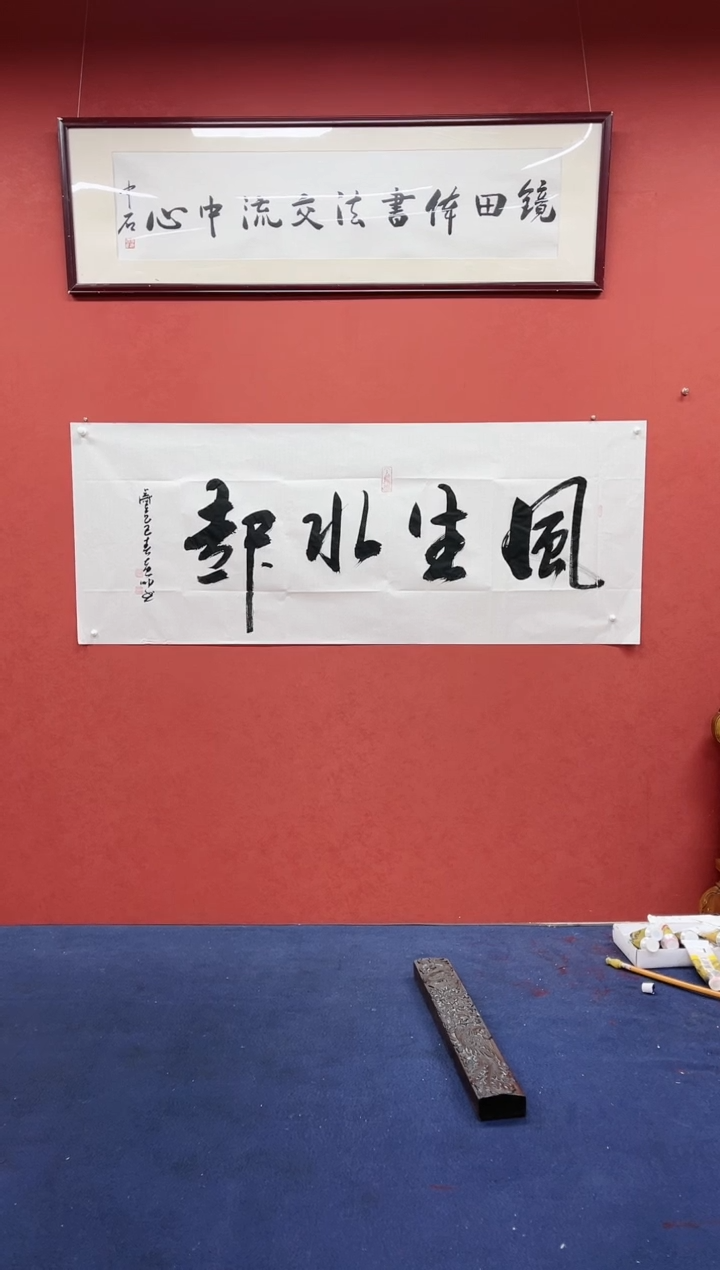 鏡田体書法交流中心
中石
風生水起